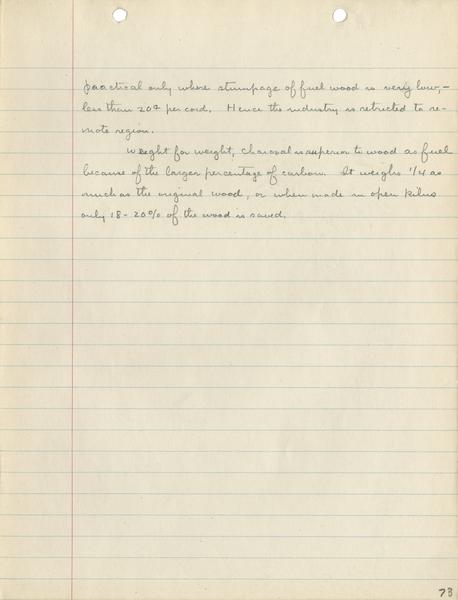 practical only where stumpage of fuel wood is very low, -
less than 20¢ per cord. Hence the industry is retricted to re-
mote region.
Weight for weight, charcoal is superior to wood as fuel
because of the larger percentage of carbon. It weighs 1/4 as
much as the original wood, or when made in open kilns
only 18-20% of the wood is saved.
73